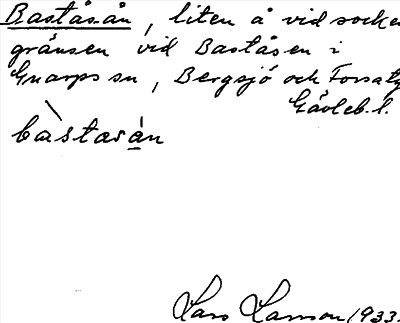 Baståsån, liten å vid socken
gränsen vid Baståsen i
Gnarps sn, Bergsjö och Forsa tg
Gävleb. l.
bàstasån
Lars Larsson 1933.